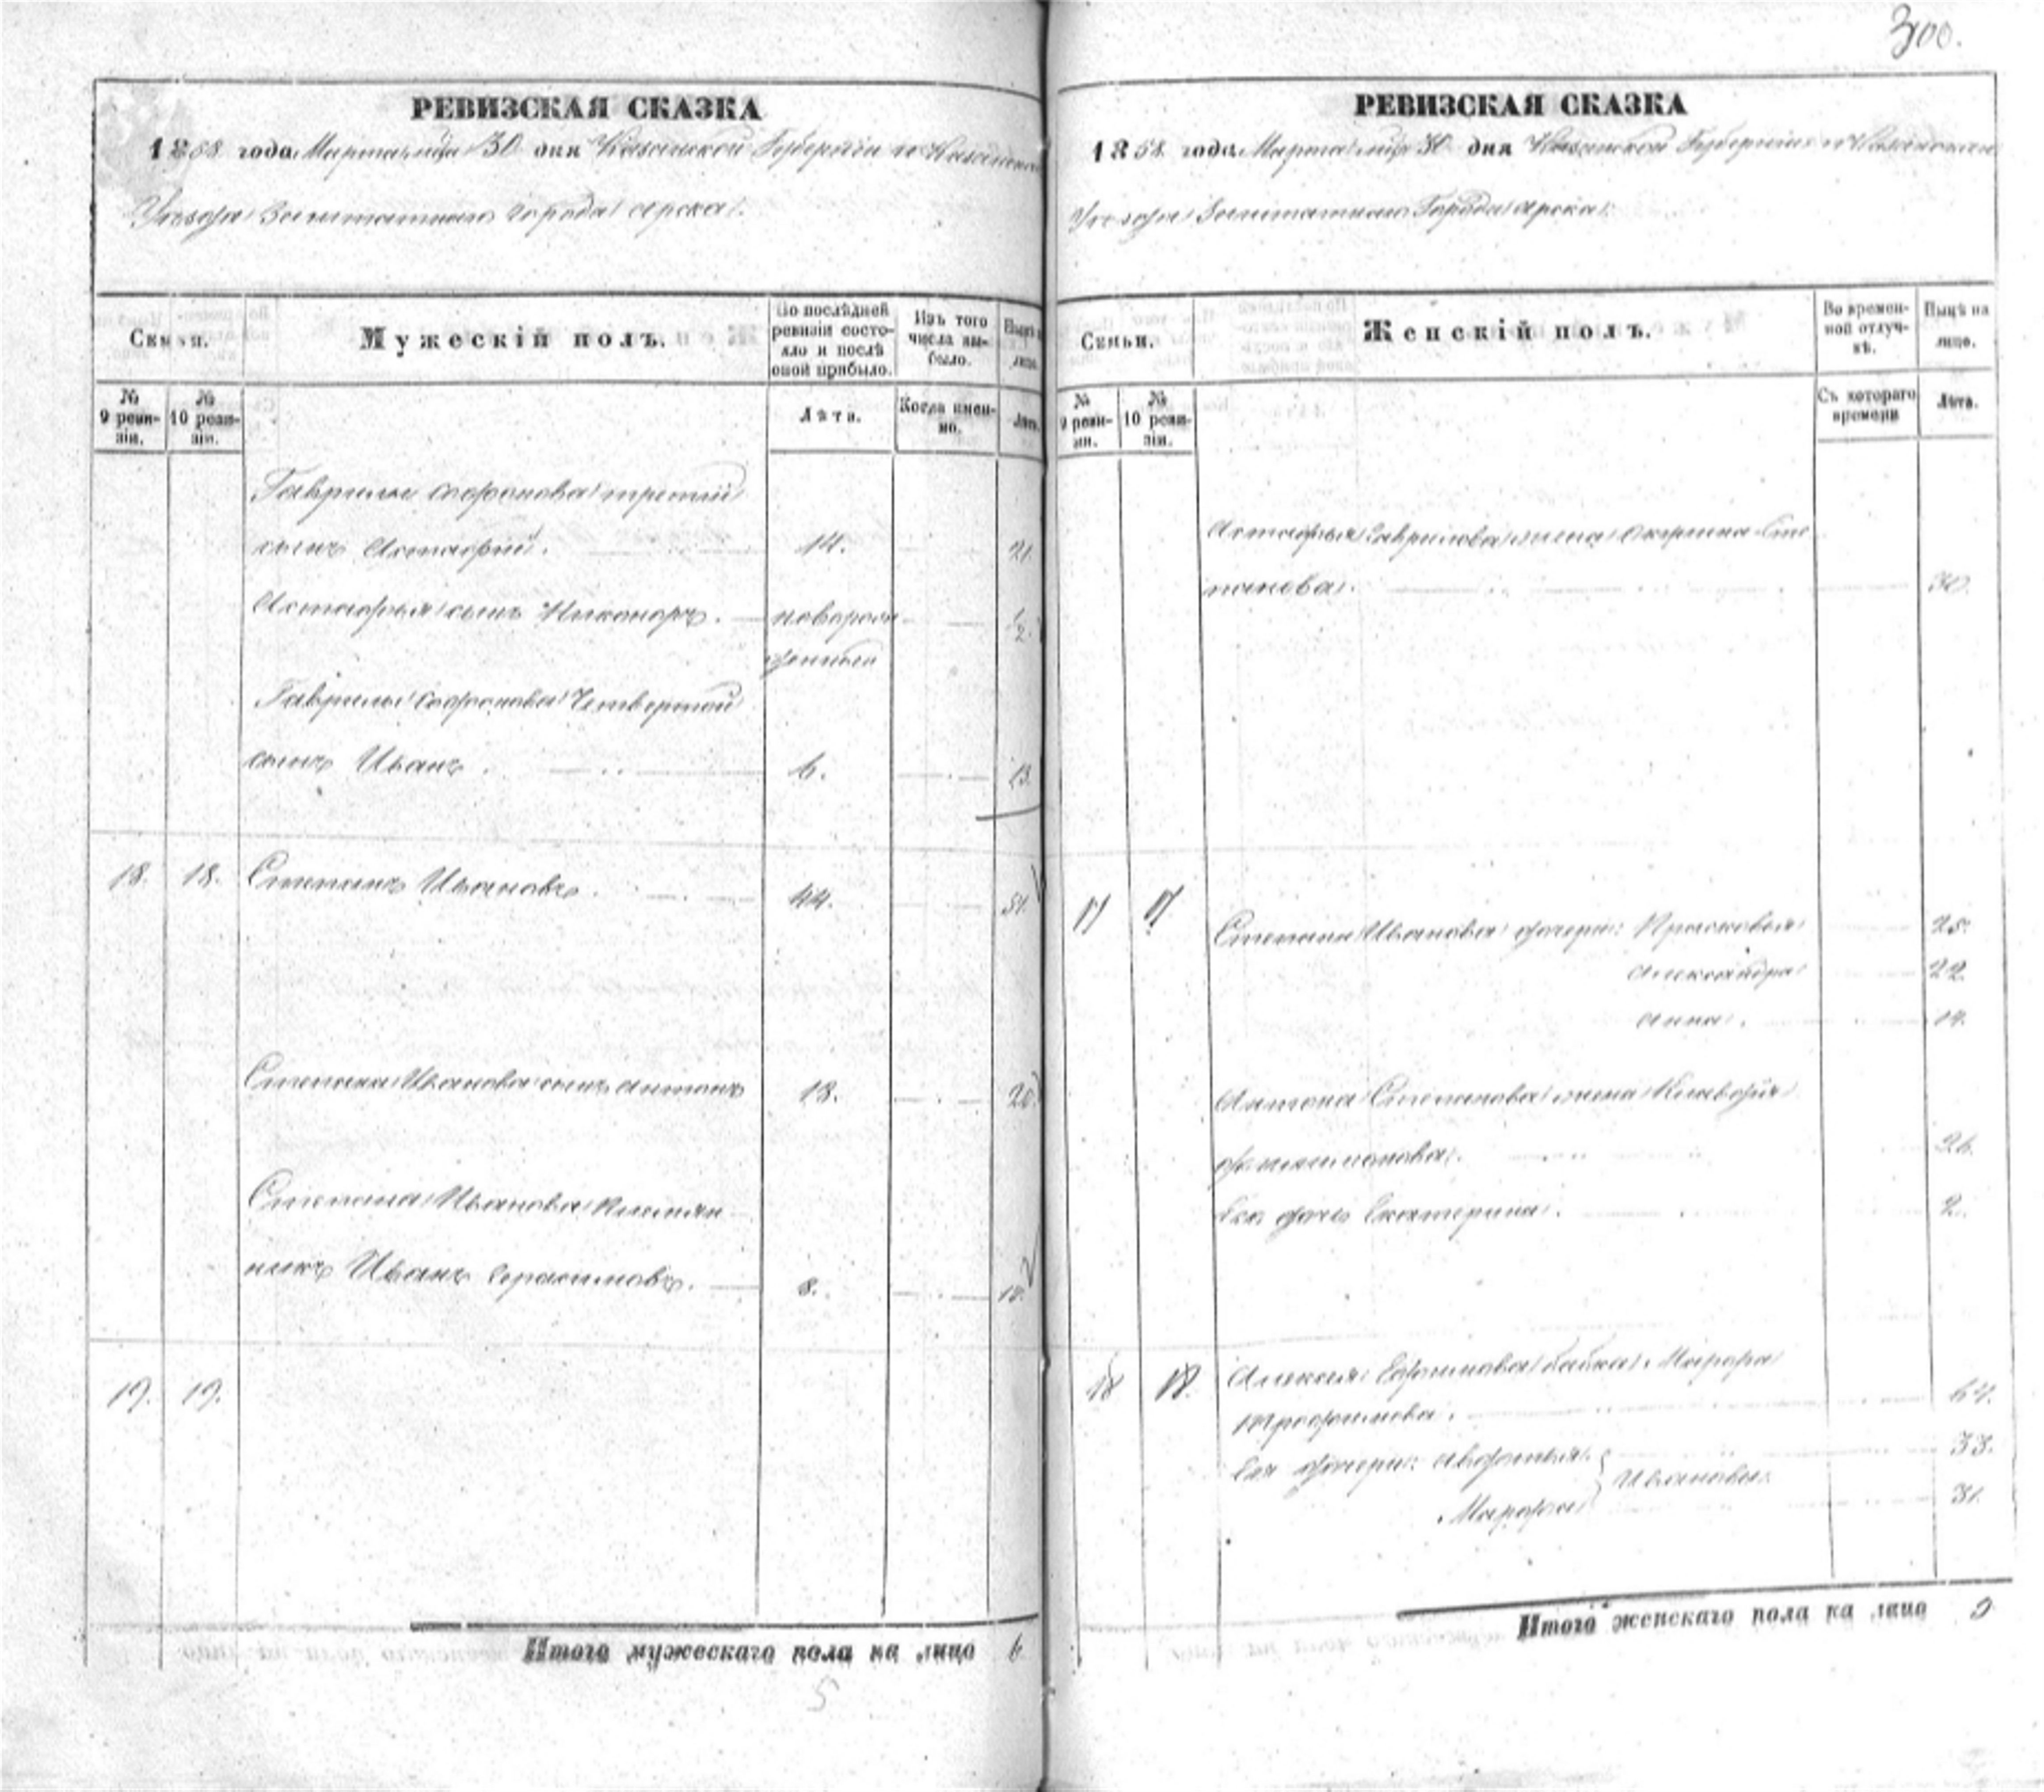 300.
РЕВИЗСКАЯ СКАЗКА
1858 года Марта мца 30 дня Казанской Губерніи и Казанскаго
Уезда Заштатнаго города Арска.
Семьи.
Мужескій полъ.
По послѣдней ревизіи состояло и послѣ оной прибыло.
Изъ того числа выбыло.
Нынѣ на лицо.
№ 9 ревизіи.
№ 10 ревизіи.
Лѣта.
Когда именно.
Лѣта.
Гаврилы Софронова третій
сынъ Астафій. 14. 21.
Астафья сынъ Никоноръ. новорож
денный 1/2.
Гаврилы Софронова Четвертой
сынъ Иванъ. 6. 13.
18. 18. Степанъ Ивановъ. 44. 51.
Степана Иванова сынъ Антонъ 13. 20.
Степана Иванова племян
никъ Иванъ Герасимовъ. 8.
19. 19.
Итого мужескаго пола на лицо 6
5
РЕВИЗСКАЯ СКАЗКА
1858 года Марта мца 30 дня Казанской Губерніи и Казанскаго
Уезда Заштатнаго Города Арска.
Семьи.
Женскій полъ.
Во временной отлучкѣ.
Нынѣ на лицо.
№ 9 ревизіи.
№ 10 ревизіи.
Съ котораго времени
Лѣта.
Астафья Гаврилова жена Акулина Сте
панова. 30.
17 17
Степана Иванова дочери: Прасковья 25.
Александра 22.
Анна. 14.
Антона Степанова жена Клавдія
Филимонова. 26.
Его дочь Екатерина. 2.
18 18. Алексея Ефимова бабка Марфа
Трофимова. 64.
Ея дочери: Авдотья 33.
Ивановы.
Марфа 31.
Итого женскаго пола на лицо 9